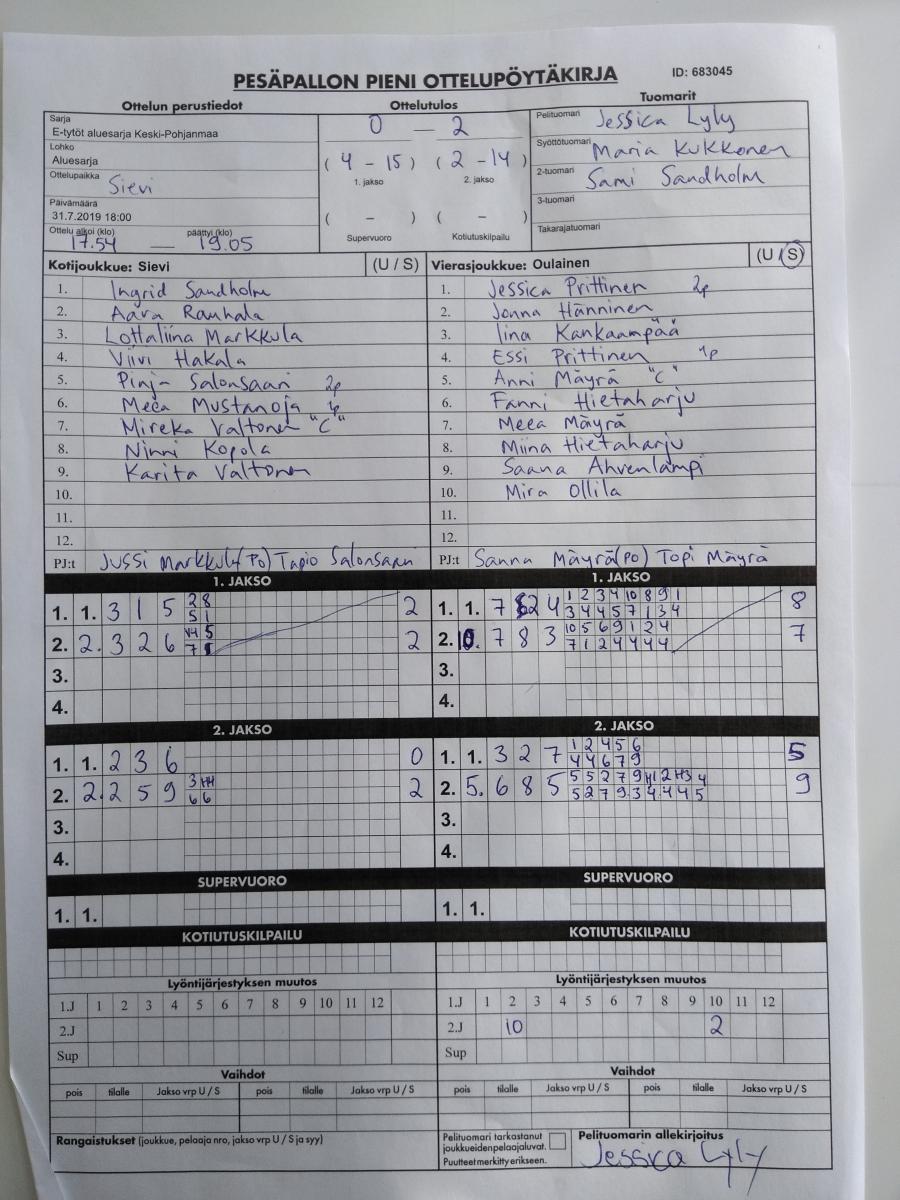 PESÄPALLON PIENI OTTELUPÖYTÄKIRJA
ID: 683045
Ottelun perustiedot
Ottelutulos
Tuomarit
Sarja
E-tytöt aluesarja Keski-Pohjanmaa
Lohko
Aluesarja
Ottelupaikka Sievi
Päivämäärä
31.7.2019 18:00
Ottelu alkoi (klo) päättyi (klo)
17.54 — 19.05
0 — 2
( 4 - 15 ) ( 2 - 14 )
1. jakso 2. jakso
( - ) ( - )
Supervuoro Kotiutuskilpailu
Pelituomari Jessica Lyly
Syöttötuomari Maria Kukkonen
2-tuomari Sami Sandholm
3-tuomari
Takarajatuomari
Kotijoukkue: Sievi (U / S)
1. Ingrid Sandholm
2. Aava Rauhala
3. Lottaliina Markkula
4. Viivi Hakala
5. Pinja Salonsaari 2p
6. Meea Mustanoja 1p
7. Mireka Valtonen "C"
8. Ninni Kopola
9. Karita Valtonen
10.
11.
12.
PJ:t Jussi Markkula (PO) Tapio Salonsaari
Vierasjoukkue: Oulainen (U / S)
1. Jessica Prittinen 2p
2. Jonna Hänninen
3. Iina Kankaanpää
4. Essi Prittinen 1p
5. Anni Mäyrä "C"
6. Fanni Hietaharju
7. Meea Mäyrä
8. Miina Hietaharju
9. Saana Ahvenlampi
10. Mira Ollila
11.
12.
PJ:t Sanna Mäyrä (PO) Topi Mäyrä
1. JAKSO
1. 1. 3 1 5 2 8 2
5 1
2. 2. 3 2 6 5 2
7
3.
4.
1. JAKSO
1. 1. 7 2 4 1 2 3 4 10 8 9 1 8
3 4 4 5 7 1 3 4
2. 10. 7 8 3 10 5 6 9 1 2 4 7
7 1 2 4 4 4 4
3.
4.
2. JAKSO
1. 1. 2 3 6 0
2. 2. 2 5 9 3 2
6 6
3.
4.
2. JAKSO
1. 1. 3 2 7 1 2 4 5 6 5
4 4 6 7 9
2. 5. 6 8 5 5 5 2 7 9 1 2 3 4 9
5 2 7 9 3 4 4 4 5
3.
4.
SUPERVUORO
1. 1.
SUPERVUORO
1. 1.
KOTIUTUSKILPAILU
KOTIUTUSKILPAILU
Lyöntijärjestyksen muutos
1.J 1 2 3 4 5 6 7 8 9 10 11 12
2.J
Sup
Lyöntijärjestyksen muutos
1.J 1 2 3 4 5 6 7 8 9 10 11 12
2.J 10 2
Sup
Vaihdot
pois tilalle Jakso vrp U / S pois tilalle Jakso vrp U / S
Vaihdot
pois tilalle Jakso vrp U / S pois tilalle Jakso vrp U / S
Rangaistukset (joukkue, pelaaja nro, jakso vrp U / S ja syy)
Pelituomari tarkastanut
joukkueiden pelaajaluvat.
Puutteet merkitty erikseen.
Pelituomarin allekirjoitus
Jessica Lyly